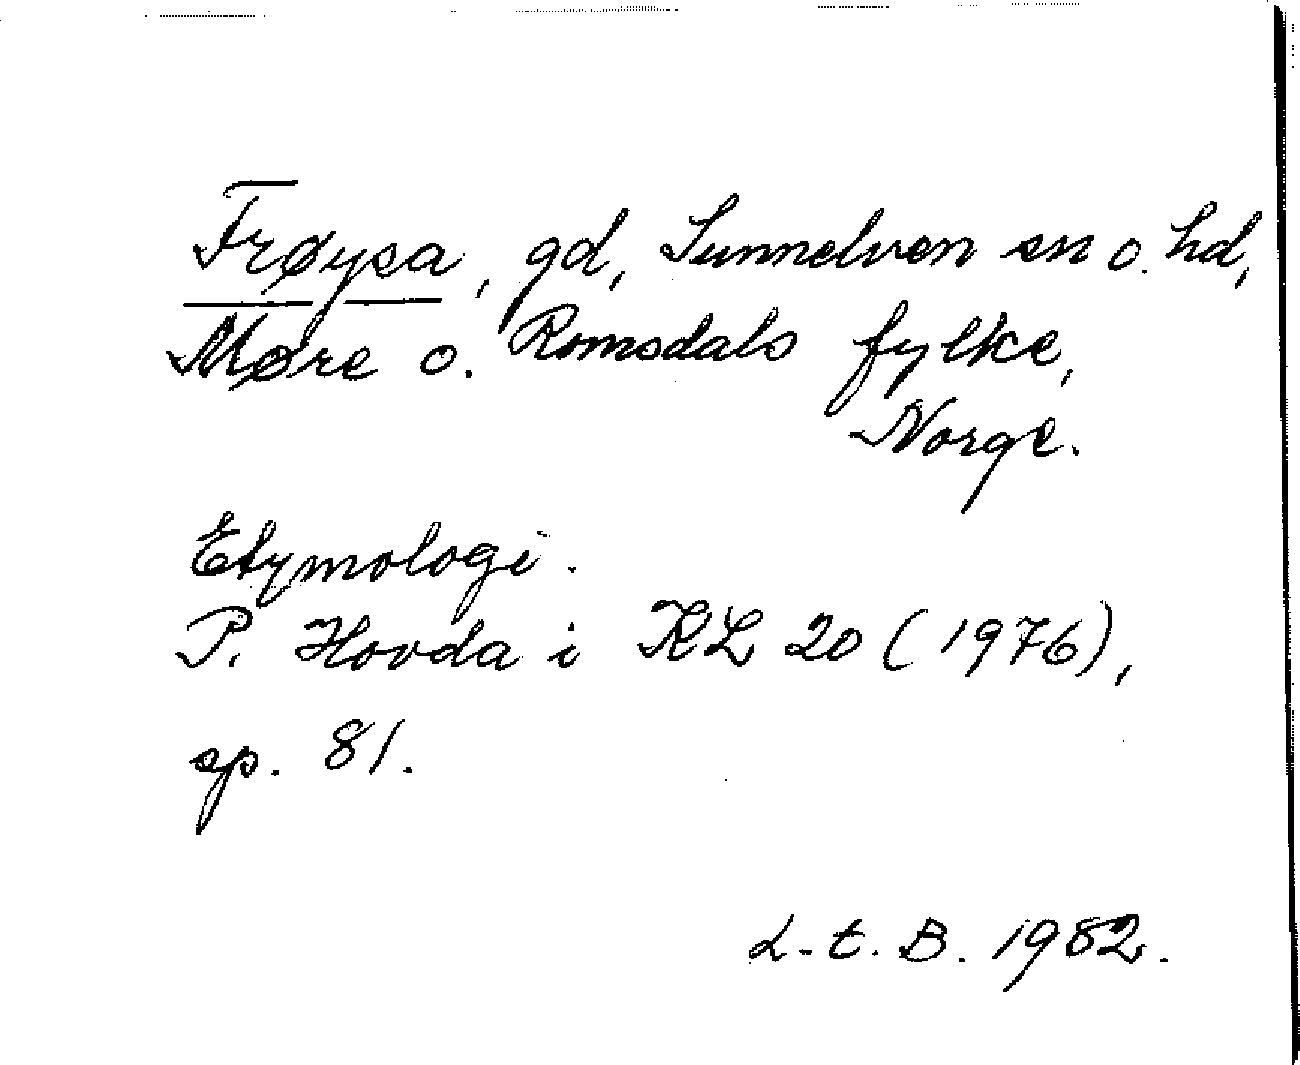 Frøysa, gd, Sunnelven sn o. hd,
Møre o. Romsdals fylke,
Norge.
Etymologi.
P. Hovda i KL 20 (1976),
sp. 81.
L. t. B. 1982.